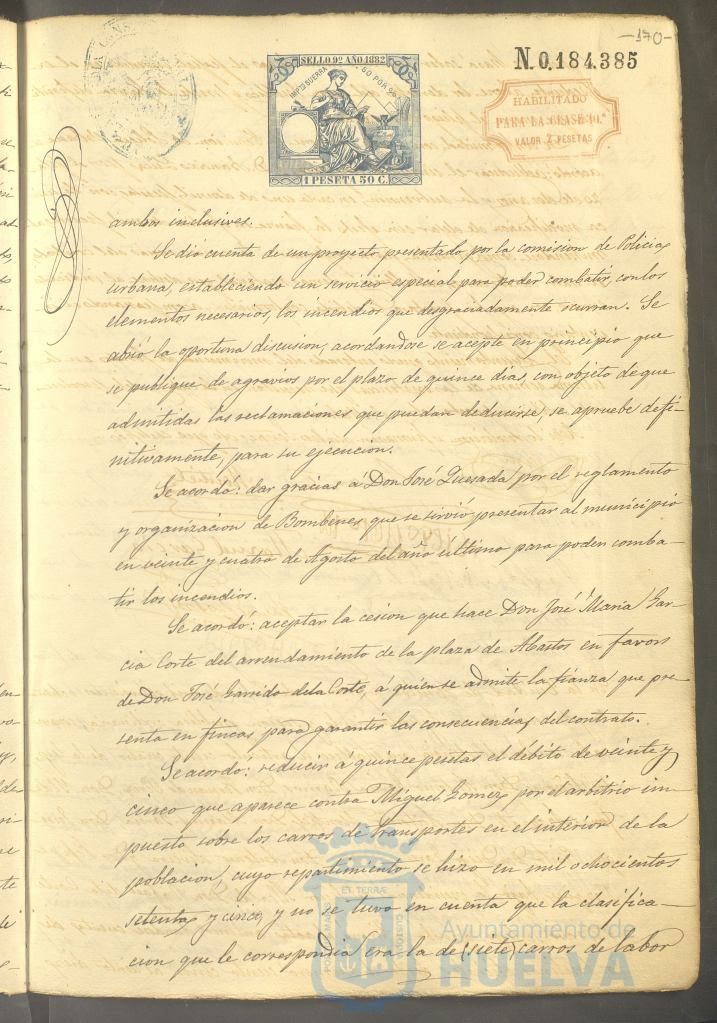 -170-
N.0.184.385
SELLO 9º AÑO 1882
IMPTO GUERRA 50 POR 100
1 PESETA 50 C.
HABILITADO
PARA LA CLASE 10.ª
VALOR 2 PESETAS
ambos inclusives.
Se dio cuenta de un proyecto presentado por la comision de Policia
urbana, estableciendo un servicio especial para poder combatir, con los
elementos necesarios, los incendios que desgraciadamente ocurran. Se
abrió la oportuna discusion, acordandose se acepte en principio que
se publique de agravios por el plazo de quince dias, con objeto de que
admitidas las reclamaciones que puedan deducirse, se apruebe defi-
nitivamente, para su ejecucion.
Se acordó: dar gracias á Don José Quesada por el reglamento
y organizacion de Bomberos que se sirvió presentar al municipio
en veinte y cuatro de Agosto del año ultimo para poder comba-
tir los incendios.
Se acordó: aceptar la cesion que hace Don José Maria Gar-
cia Corte del arrendamiento de la plaza de Abastos en favor
de Don José Garrido de la Corte, á quien se admite la fianza que pre-
senta en fincas para garantir las consecuencias del contrato.
Se acordó: reducir á quince pesetas el débito de veinte y
cinco que aparece contra Miguel Gomez por el arbitrio im-
puesto sobre los carros de transportes en el interior de la
poblacion, cuyo repartimiento se hizo en mil ochocientos
setenta y cinco, y no se tuvo en cuenta que la clasifica-
cion que le correspondia era la de (siete) carros de labor
Ayuntamiento de
HUELVA